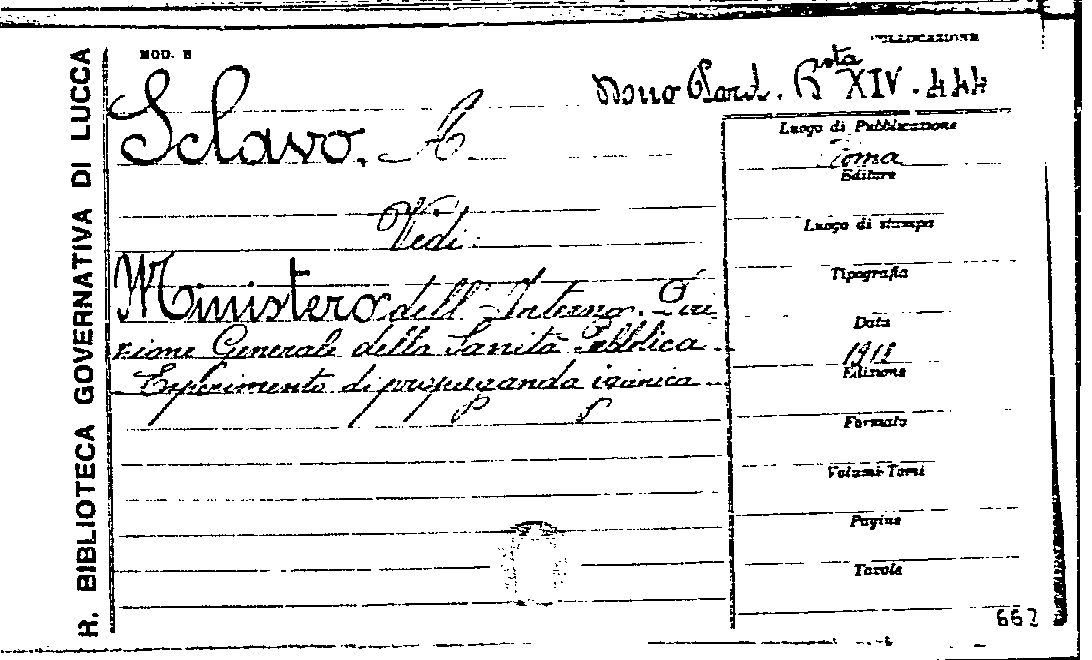 R. BIBLIOTECA GOVERNATIVA DI LUCCA
MOD. B
COLLOCAZIONE
Dono Pard. Bsta XIV. 444
Sclavo, A
Vedi
Ministero dell'Interno. Dire
zione Generale della Sanità Pubblica
Esperimento di propaganda igienica
Luogo di Pubblicazione
Roma
Editore
Luogo di stampa
Tipografia
Data
1912
Edizione
Formato
Volumi-Tomi
Pagine
Tavole
662